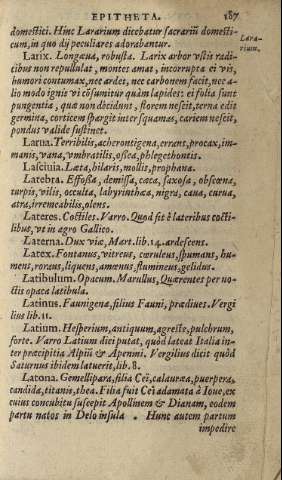 EPITHETA. 187
domestici. Hinc Lararium dicebatur sacrariũ domesti-
cum, in quo dij peculiares adorabantur.
Lara-
rium.
Larix. Longæua, robusta. Larix arbor vstis radi-
cibus non repullulat, montes amat, incorrupta ei vis,
humori contumax, nec ardet, nec carbonem facit, nec a-
lio modo ignis vi cõsumitur quàm lapides: ei folia sunt
pungentia, quæ non decidunt, florem nescit, terna edit
germina, corticem spargit inter squamas, cariem nescit,
pondus valide sustinet.
Larua. Terribilis, acherontigena, errans, procax, im-
manis, vana, vmbratilis, osca, phlegethontis.
Lasciuia. Læta, hilaris, mollis, prophana.
Latebra. Effossa, demissa, cæca, saxosa, obscœna,
turpis, vilis, occulta, labyrinthæa, nigra, caua, curua,
atra, irremeabilis, olens.
Lateres. Coctiles. Varro. Quod sit è lateribus cocti-
libus, vt in agro Gallico.
Laterna. Dux viæ, Mart. lib. 14. ardescens.
Latex. Fontanus, vitreus, cœruleus, spumans, hu-
mens, roreus, liquens, amœnus, flumineus, gelidus.
Latibulum. Opacum. Marullus, Quærentes per no-
ctis opaca latibula.
Latinus. Faunigena, filius Fauni, prædiues. Vergi
lius lib. 11.
Latium. Hesperium, antiquum, agreste, pulchrum,
forte. Varro Latium dici putat, quòd lateat Italia in-
ter præcipitia Alpiũ & Apenini. Vergilius dicit quòd
Saturnus ibidem latuerit, lib. 8.
Latona. Gemellipara, filia Cœi, calauræa, puerpera,
candida, titanis, thea. Filia fuit Cœi adamata à Ioue, ex
cuius concubitu suscepit Apollinem & Dianam, eodem
partu natos in Delo insula. Hunc autem partum
impedire